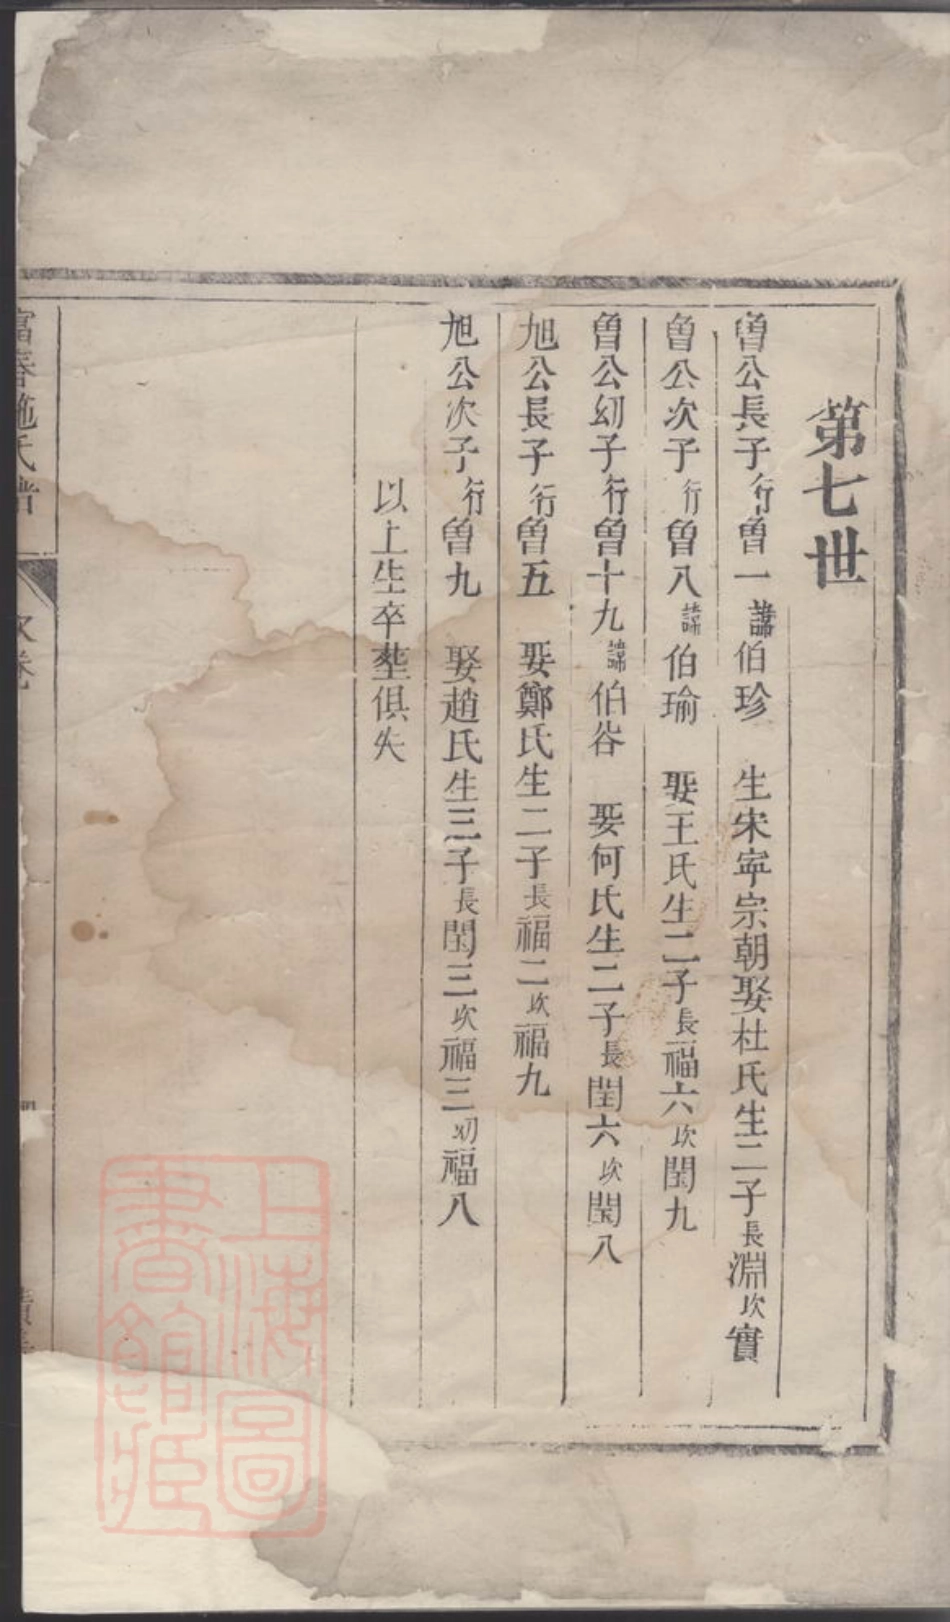 第七世
魯公長子行曾一諱伯珍　生宋寧宗朝娶杜氏生二子長淵次實
魯公次子行曾八諱伯瑜　娶王氏生二子長福六次閏九
魯公幼子行曾十九諱伯谷　娶何氏生二子長閏六次閏八
旭公長子行曾五　娶鄭氏生二子長福二次福九
旭公次子行曾九　娶趙氏生三子長閏三次福三幼福八
以上生卒塟俱失
富春施氏譜
次卷
上海圖
書館藏